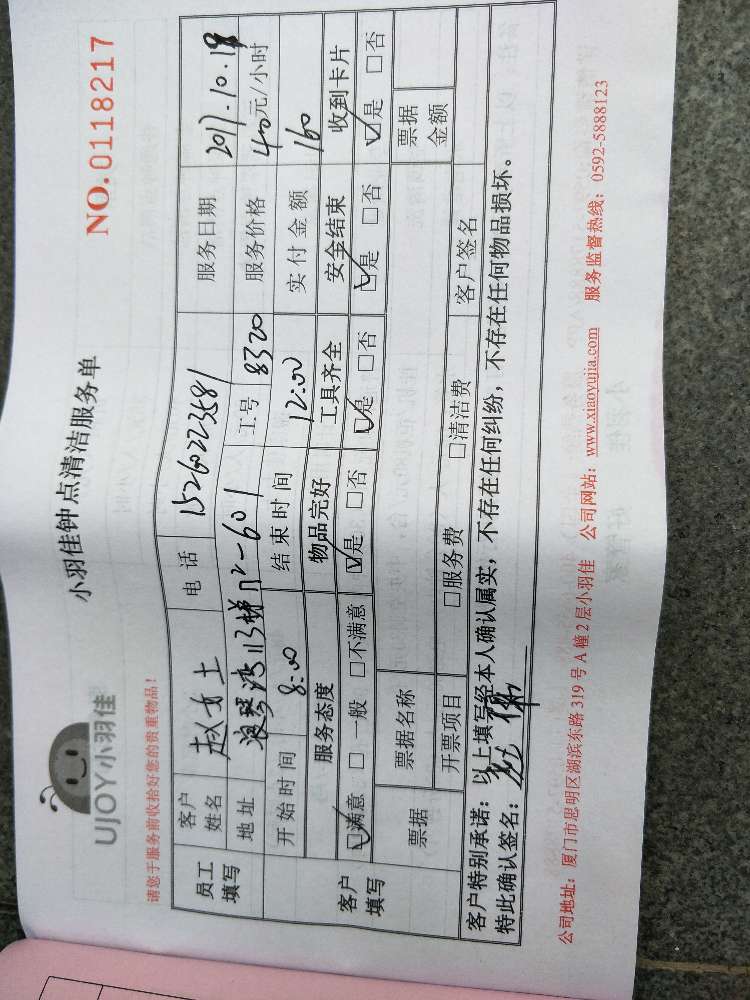 小羽佳钟点清洁服务单
NO.0118217
UJOY小羽佳
请您于服务前收拾好您的贵重物品！
员工填写 客户姓名 赵女士 电话 15260223581 服务日期 2017.10.18
地址 浪琴湾113梯 601 工号 8320 服务价格 40元/小时
开始时间 8:00 结束时间 12:00 实付金额 160
客户填写 服务态度 物品完好 工具齐全 安全结束 收到卡片
☑满意 □一般 □不满意 ☑是 □否 ☑是 □否 ☑是 □否 ☑是 □否
票据 票据名称 票据金额
开票项目 □服务费 □清洁费 客户签名
客户特别承诺：以上填写经本人确认属实，不存在任何纠纷，不存在任何物品损坏。
特此确认签名：
公司地址：厦门市思明区湖滨东路319号A幢2层小羽佳 公司网站：www.xiaoyujia.com 服务监督热线：0592-5888123